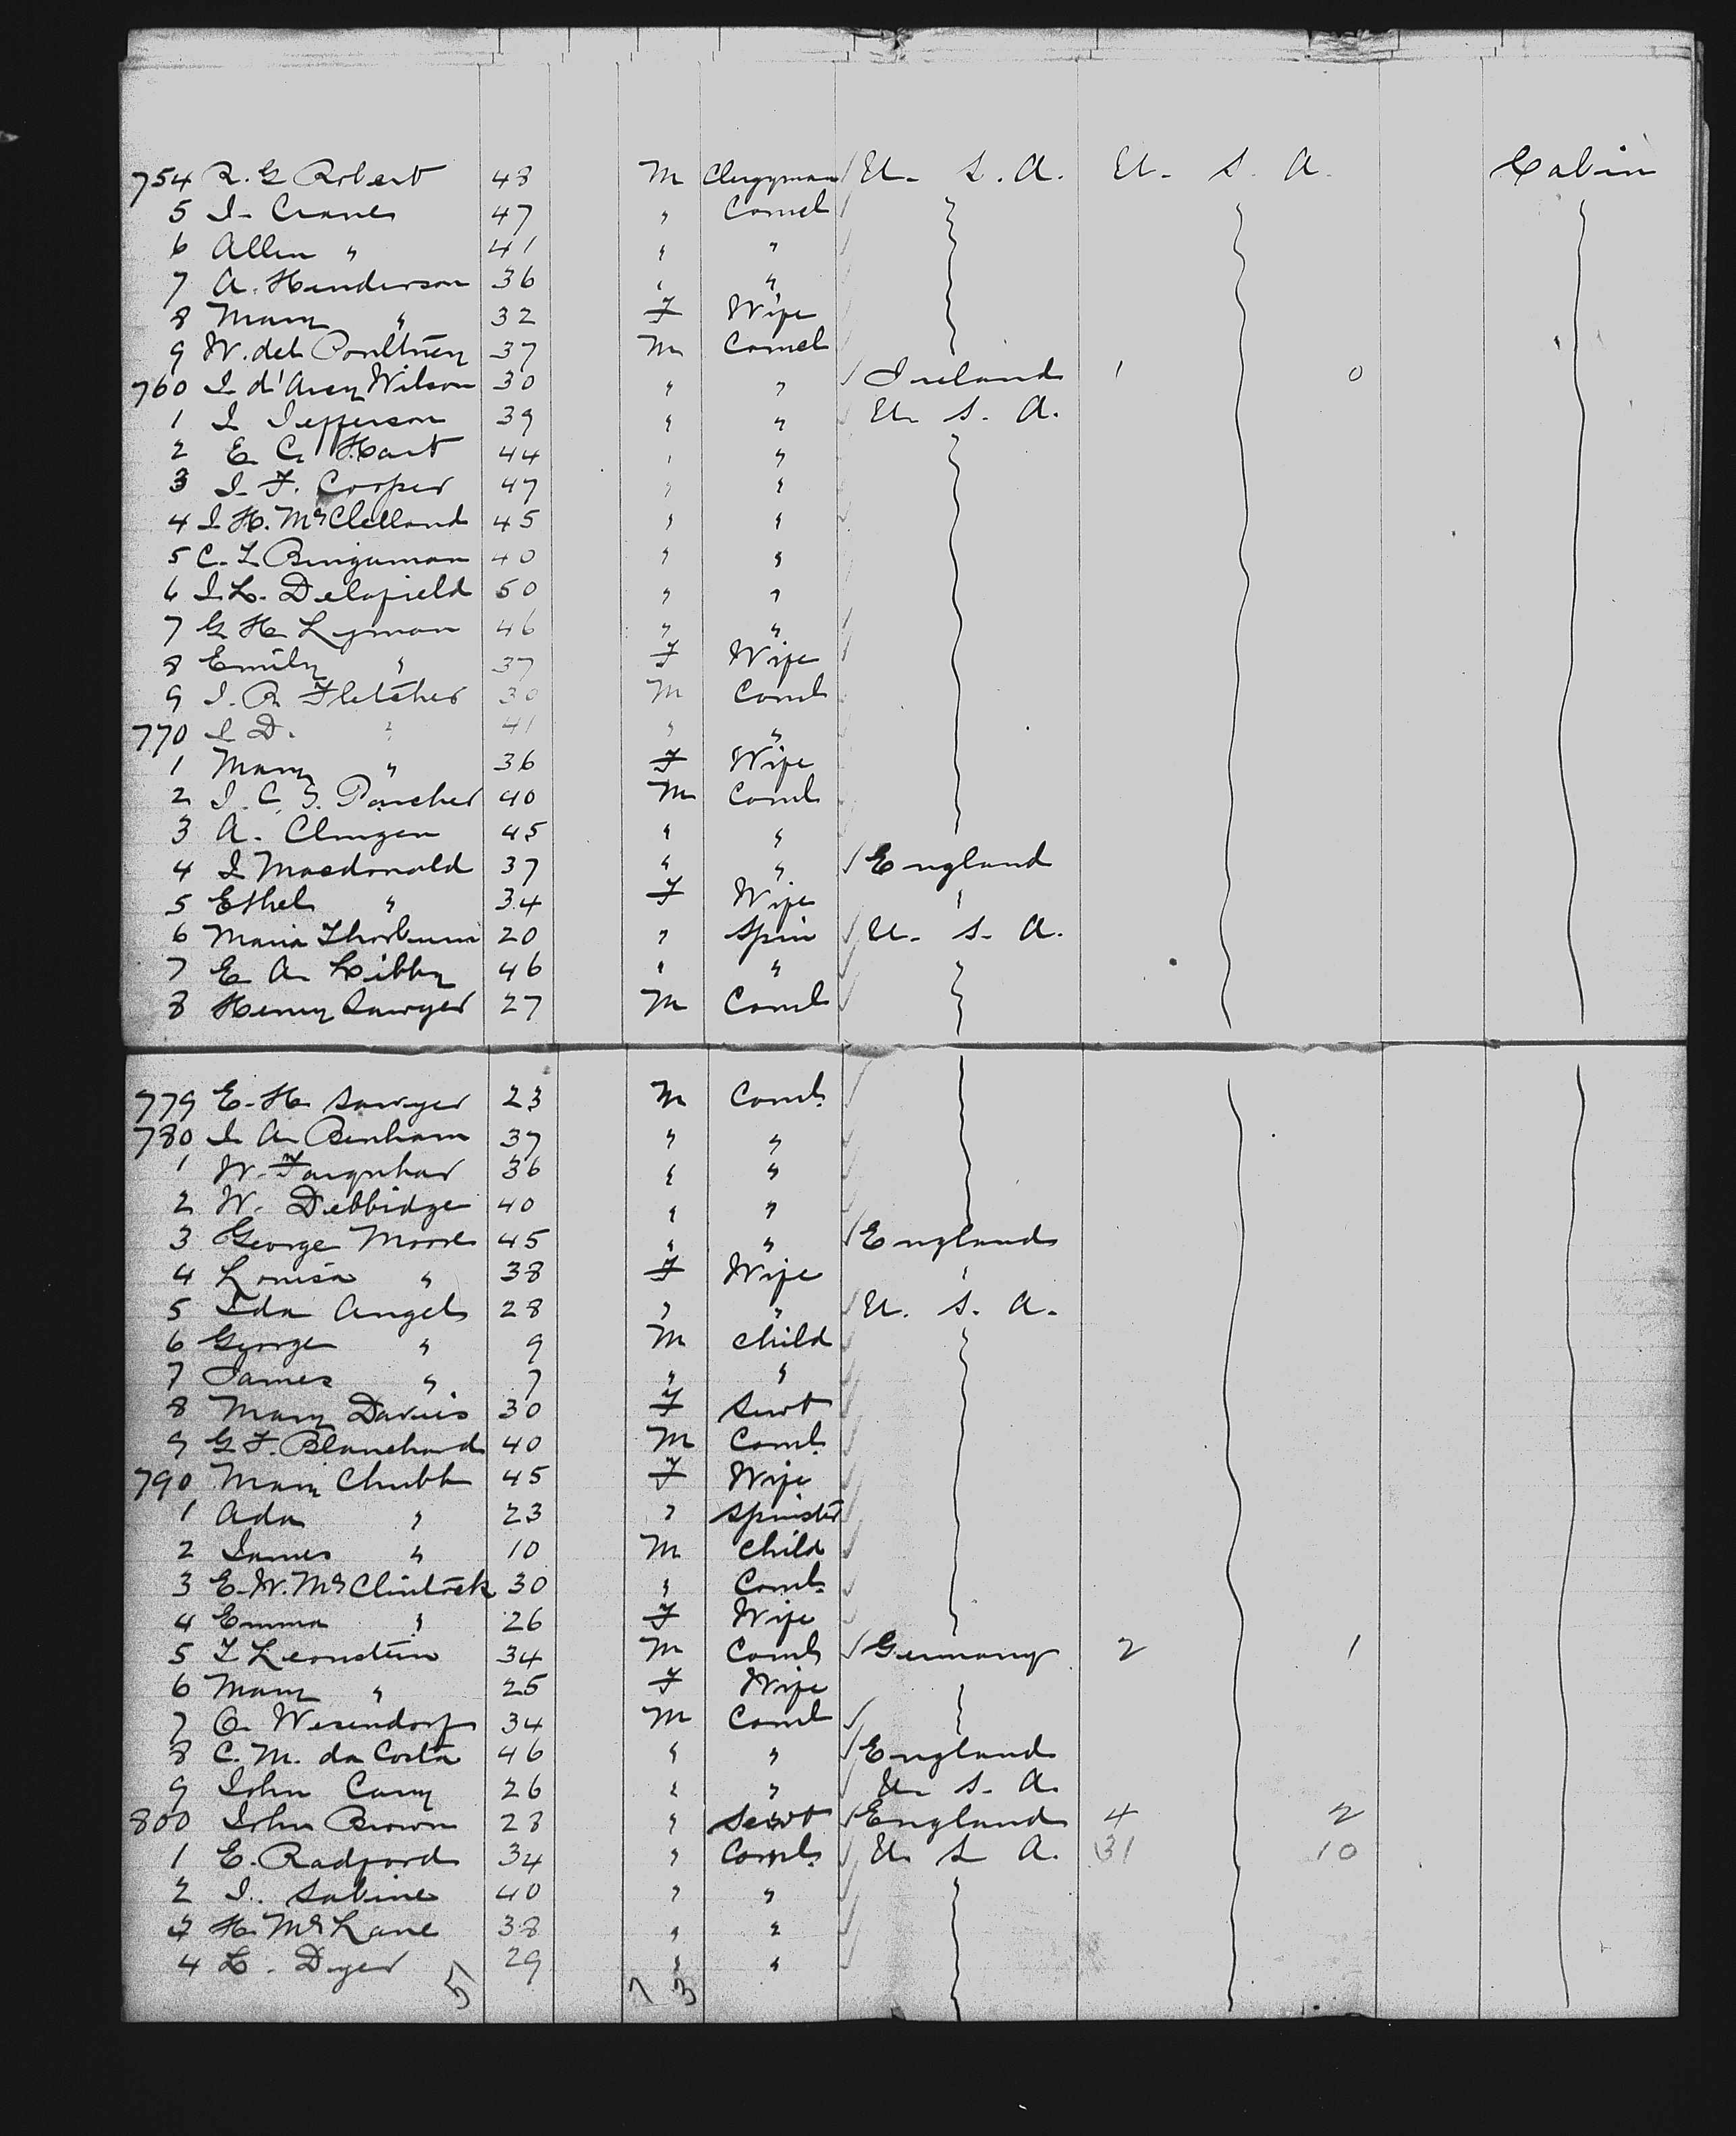 754 R. G Robert 48 M Clergyman U. S. A. U. S. A. Cabin
5 J. Crane 47 " Coml
6 Allen " 41 " "
7 A. Henderson 36 " "
8 Mary " 32 F Wife
9 W. deL Poultney 37 M Coml
760 J d'Arcy Wilson 30 " " Ireland 1 0
1 J Jefferson 39 " " U S. A.
2 E C Hart 44 " "
3 J. F. Cooper 47 " "
4 J H. McClelland 45 " "
5 C. L Bingaman 40 " "
6 J. L. Delafield 50 " "
7 G H Lyman 46 " "
8 Emily " 37 F Wife
9 J. R Fletcher 30 M Coml
770 J D. " 41 " "
1 Mary " 36 F Wife
2 J. C. S. Parcher 40 M Coml
3 A. Clurgen 45 " "
4 J Macdonald 37 " " England
5 Ethel " 34 F Wife "
6 Maria Thorburn 20 " Spin U. S. A.
7 E A Libby 46 " "
8 Henry Sawyer 27 M Coml
779 E. H Sawyer 23 M Coml.
780 J A Benham 37 " "
1 W. Farquhar 36 " "
2 W. Debbidge 40 " "
3 George Moore 45 " " England
4 Louisa " 38 F Wife "
5 Ida Angel 28 " " U. S. A.
6 George " 9 M child
7 James " 7 " "
8 Mary Davies 30 F Servt
9 G F. Blanchard 40 M Coml.
790 Mary Chubb 45 F Wife
1 Ada " 23 " Spinster
2 James " 10 M Child
3 E. W. McClintock 30 " Coml.
4 Emma " 26 F Wife
5 Lernstein 34 M Coml Germany 2 1
6 Mary " 25 F Wife
7 O. Wesendorf 34 M Coml
8 C. M. da Costa 46 " " England
9 John Cary 26 " " U S. A.
800 John Brown 28 " Servt England 4 2
1 E. Radford 34 " Coml. U. S. A. 31 10
2 J. Sabine 40 " "
3 H McLane 38 " "
4 L. Dyer 29 " "
51 7 3